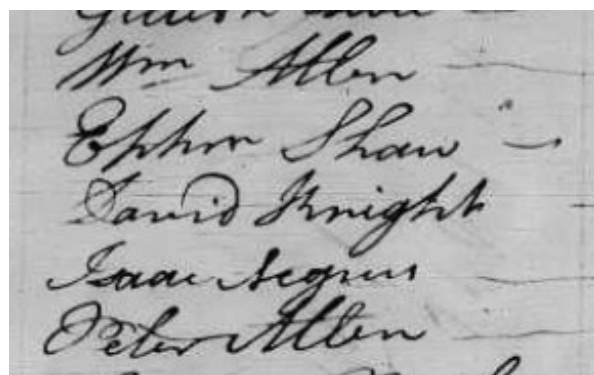 Wm Allen
Ephm Shaw
David Knight
Isaac Negrus
Peter Allen